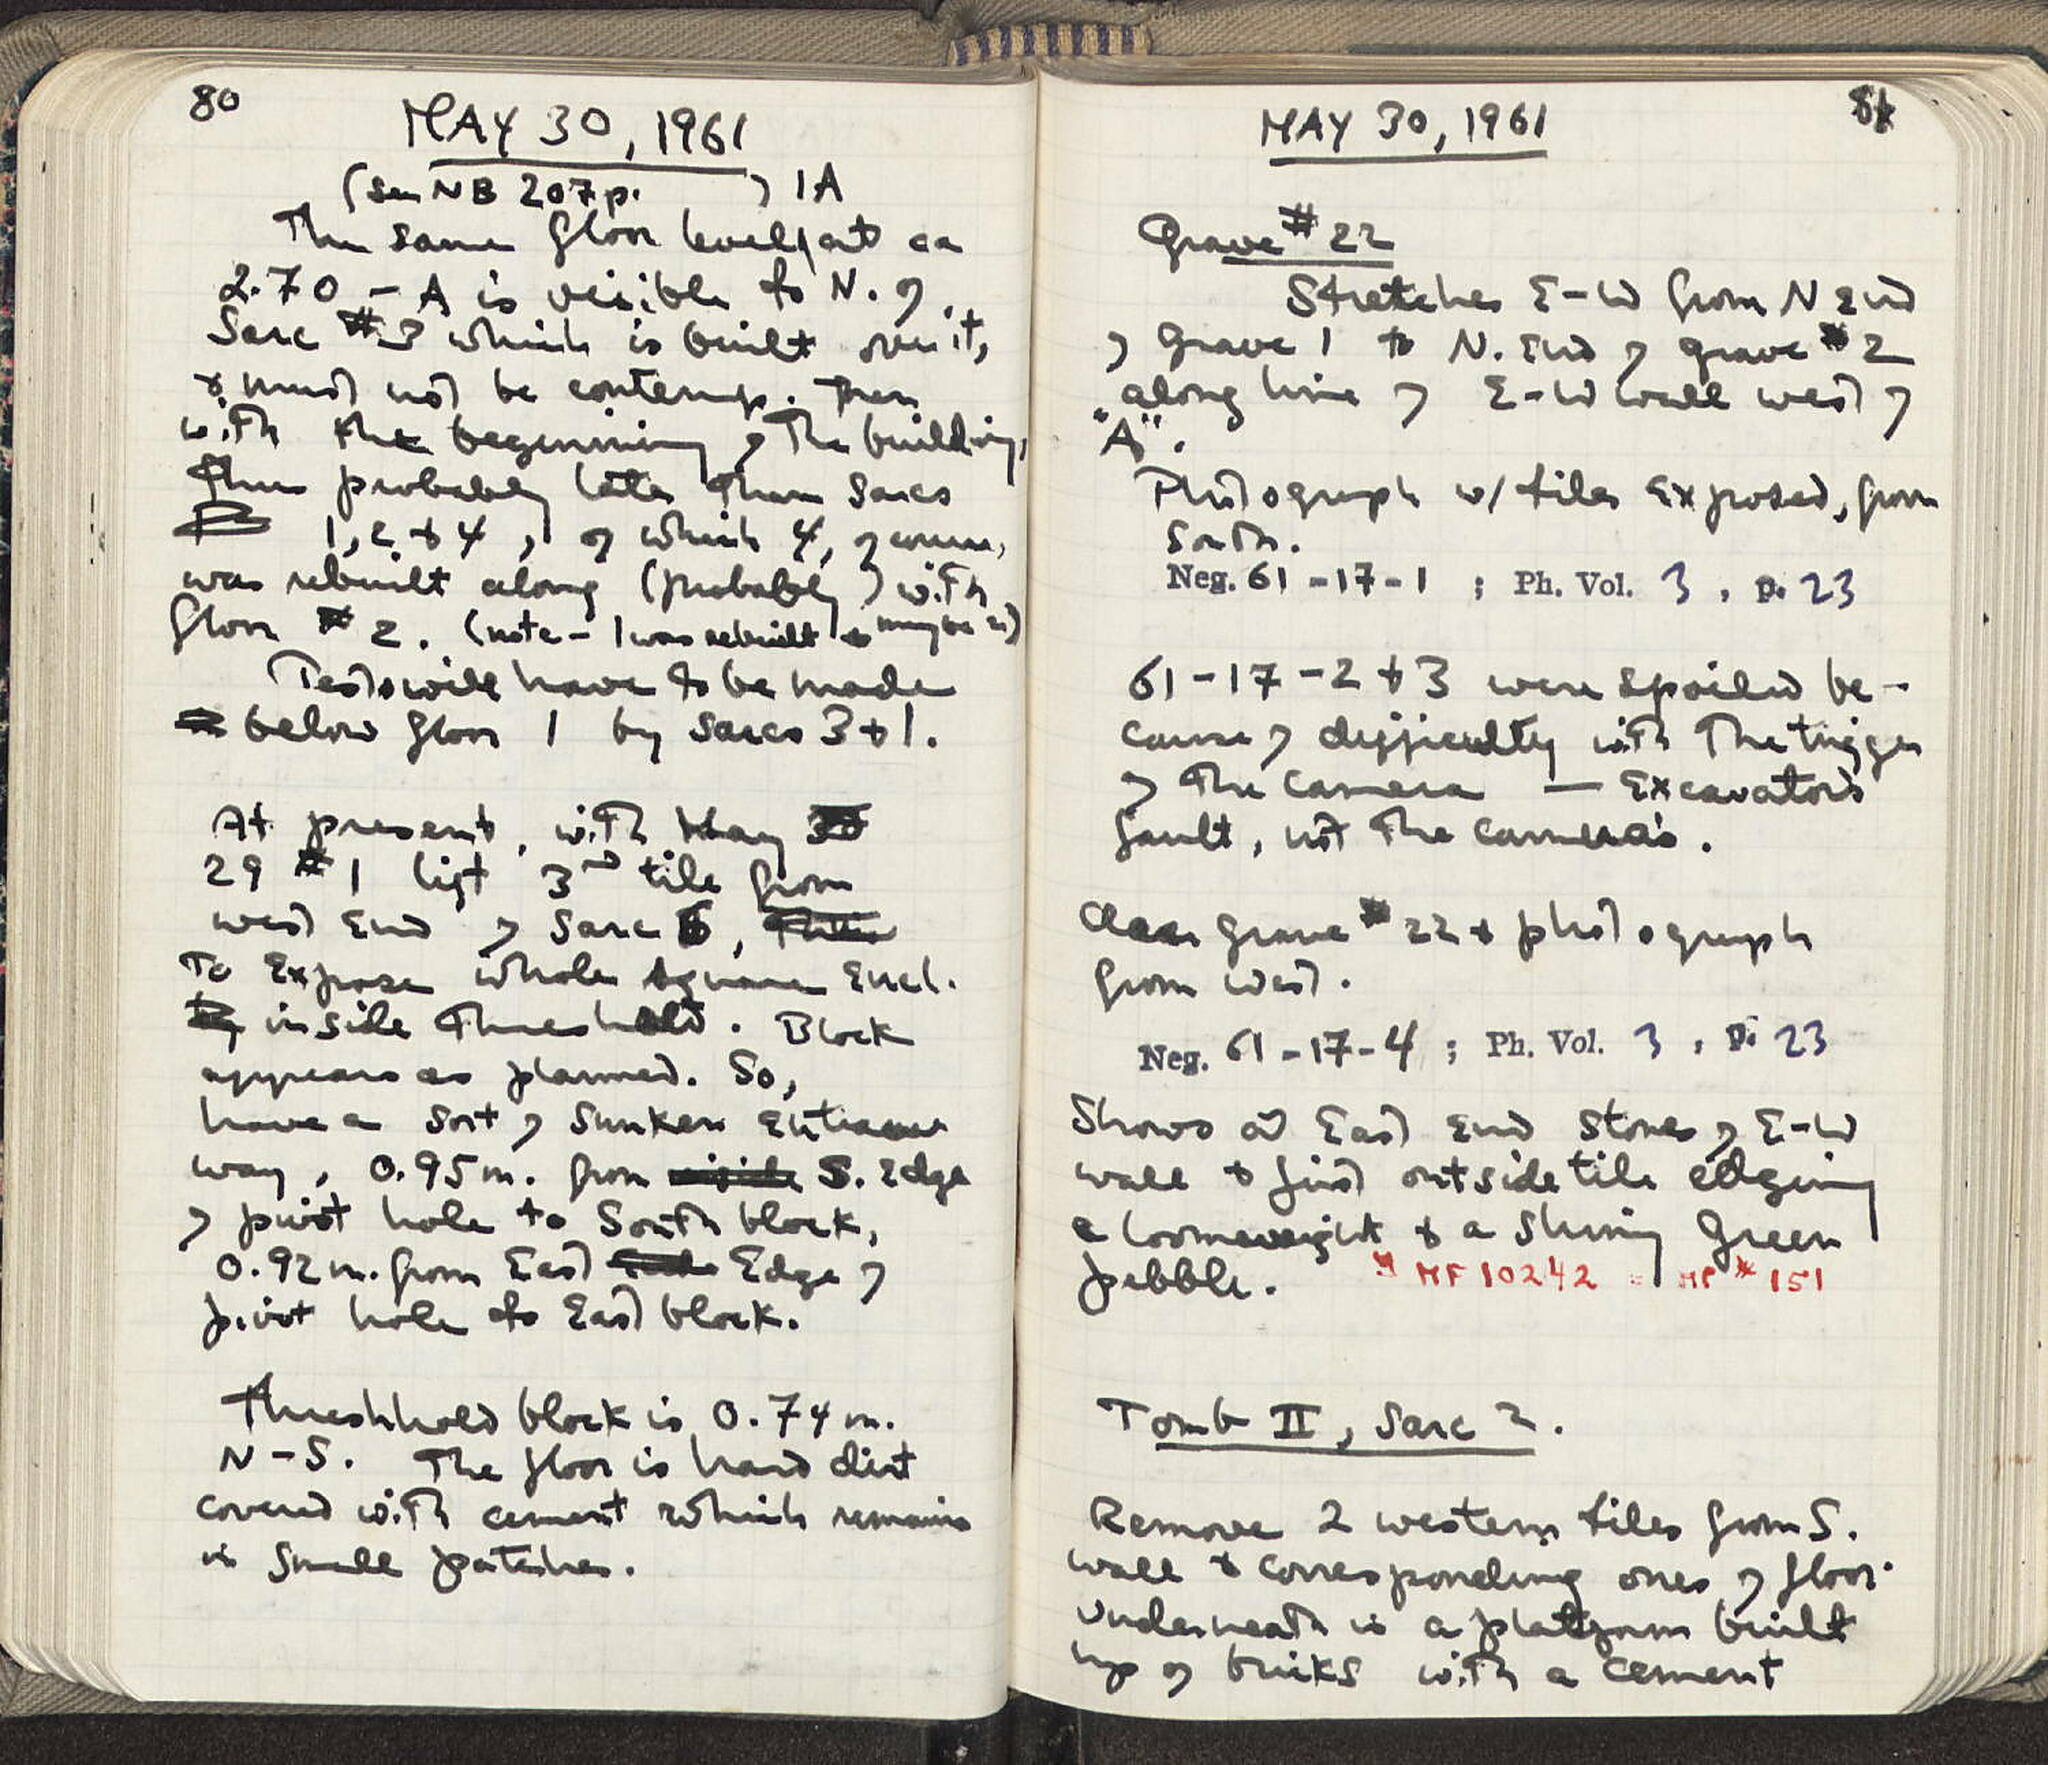 80
MAY 30, 1961
(see NB 207 p. ) 1A
The same floor level, at ca
2.70 - A is visible to N. of
Sarc #3 which is built over it,
& must not be contemp. then
with the beginning of the building,
thus probably later than Sarcs
1, 2 & 4, of which 4, of course,
was rebuilt along (probably) with
floor #2. (note - 1 was rebuilt & maybe 2)
Tests will have to be made
below floor 1 by sarcs 3 & 1.
At present, with May
29 #1 lift 3rd tile from
west end of Sarc 6,
To expose whole square encl.
inside threshold. Block
appears as planned. So,
have a sort of sunken entrance
way, 0.95 m. from S. edge
of pivot hole to South block,
0.92 m. from East Edge of
pivot hole to East block.
Threshhold block is 0.74 m.
N-S. The floor is hard dirt
covered with cement which remains
in small patches.
81
MAY 30, 1961
Grave #22
Stretches E-W from N end
of Grave 1 to N. end of grave #2
along line of E-W wall west of
"A".
Photograph w/ tiles exposed, from
South.
Neg. 61-17-1 ; Ph. Vol. 3, p. 23
61-17-2 & 3 were spoiled be-
cause of difficulty with the trigger
of the camera — Excavators
fault, not the camera's.
Clean grave #22 & photograph
from west.
Neg. 61-17-4 ; Ph. Vol. 3, p. 23
Shows at East end stones of E-W
wall & just outside tile edging
a loomweight & a shiny green
pebble. MF 10242 = MP # 151
Tomb II, Sarc 2.
Remove 2 western tiles from S.
wall & corresponding ones of floor.
Underneath is a platform built
up of bricks with a cement